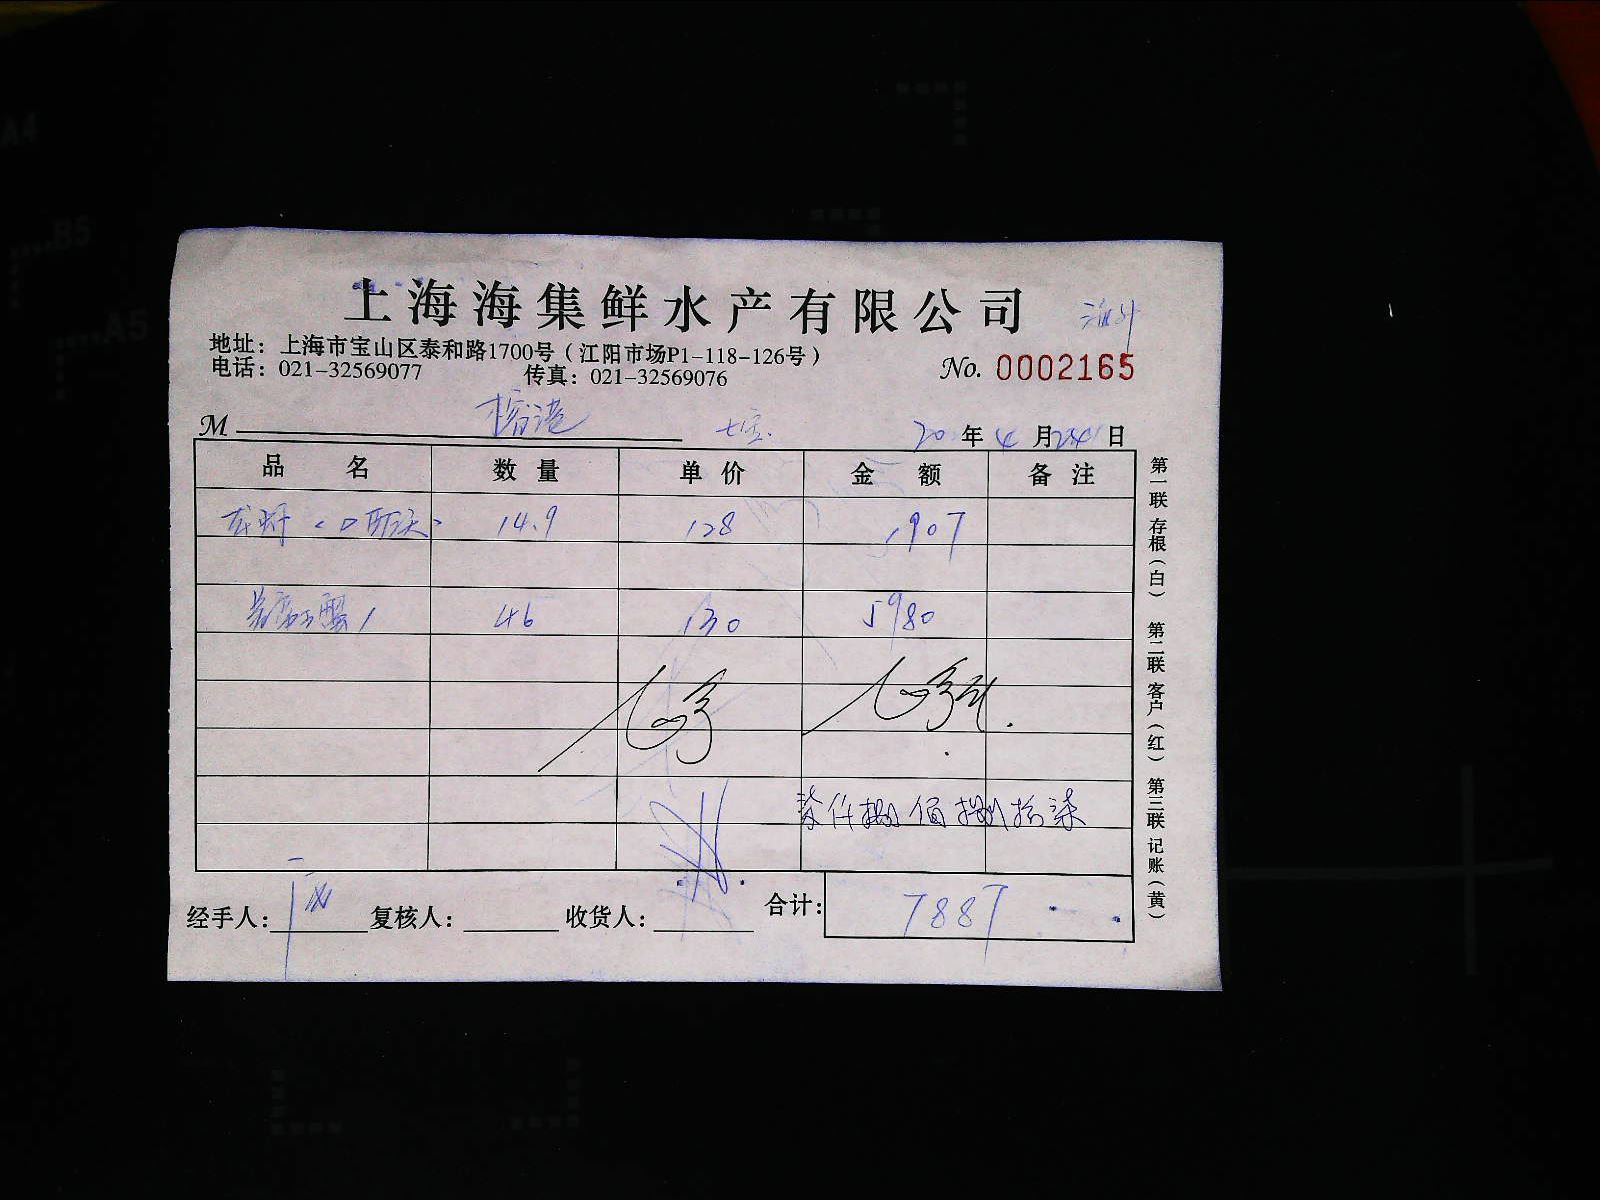 上海海集鲜水产有限公司
地址：上海市宝山区泰和路1700号（江阳市场P1-118-126号）
电话：021-32569077 传真：021-32569076
No. 0002165
M
20 年 4 月 24 日
品名 数量 单价 金额 备注
龙虾 14.9 128 1907
蟹 46 130 5980
柒仟捌佰捌拾柒
经手人： 复核人： 收货人： 合计： 7887
第一联 存根（白） 第二联 客户（红） 第三联 记账（黄）
A4
B5
A5